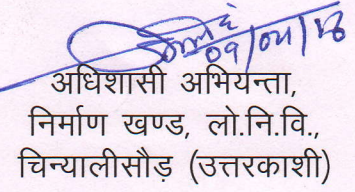 09/04/18
अधिशासी अभियन्ता,
निर्माण खण्ड, लो.नि.वि.,
चिन्यालीसौड़ (उत्तरकाशी)